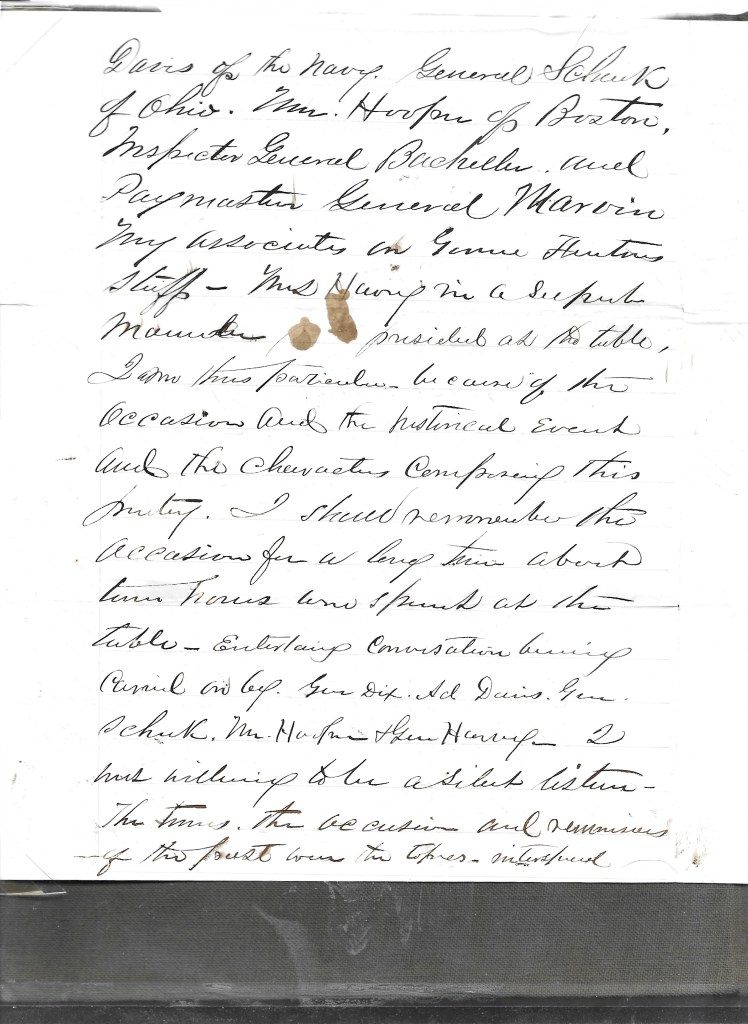 Davis of the Navy. General Schenk
of Ohio. Mr. Hooper of Boston,
Inspector General Bacheller. and
Paymaster General Marvin
My associates on Gover
Staff – Mrs Harvey in a Superb
Manner presided at the table,
I am thus particular – because of the
occasion and the historical Event
and the characters composing this
party. I shall remember the
occasion for a long time about
hours were spent at the
table – Entertaing Conversation being
Carried on by. Gen Dix. Ad Davis. Gen.
Schenk. Mr. Hooper & Gen Harvey – I
was willing to be a silent listener –
The times. the occasion and
of the past were the topics – interspersed